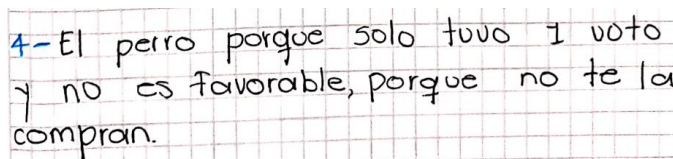 4-El perro porque solo tuvo 1 voto
y no es favorable, porque no te la
compran.